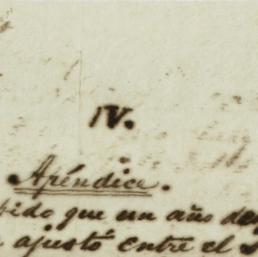 IV.
Apéndice.
que un año
ajustó entre el